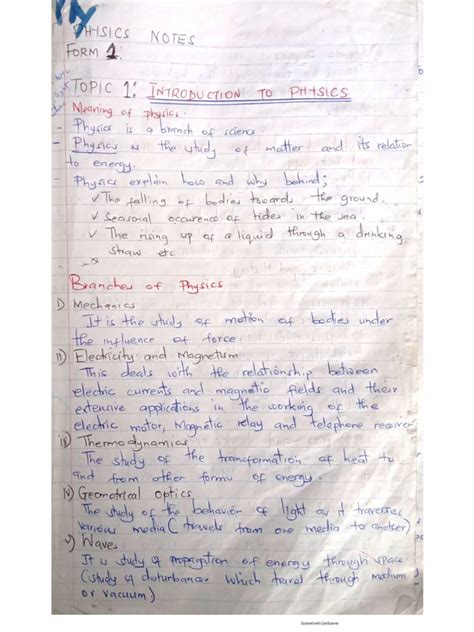 PHYSICS NOTES
FORM 1.
TOPIC 1: INTRODUCTION TO PHYSICS
Meaning of physics.
- Physics is a branch of science.
- Physics is the study of matter and its relation
to energy.
- Physics explain how and why behind;
✓ The falling of bodies towards the ground.
✓ Seasonal occurence of tides in the sea.
✓ The rising up of a liquid through a drinking
straw etc
Branches of Physics
i) Mechanics
It is the study of motion of bodies under
the influence of force.
ii) Electricity and Magnetism
This deals with the relationship between
electric currents and magnetic fields and their
extensive applications in the working of the
electric motor, Magnetic relay and telephone receiver
iii) Thermodynamics
The study of the transformation of heat to
and from other forms of energy.
iv) Geometrical optics
The study of the behavior of light as it traverses
various media ( travels from one media to another)
v) Waves
It is study of propagation of energy through space
(study of disturbances which travel through medium
or vacuum)
Scanned with CamScanner